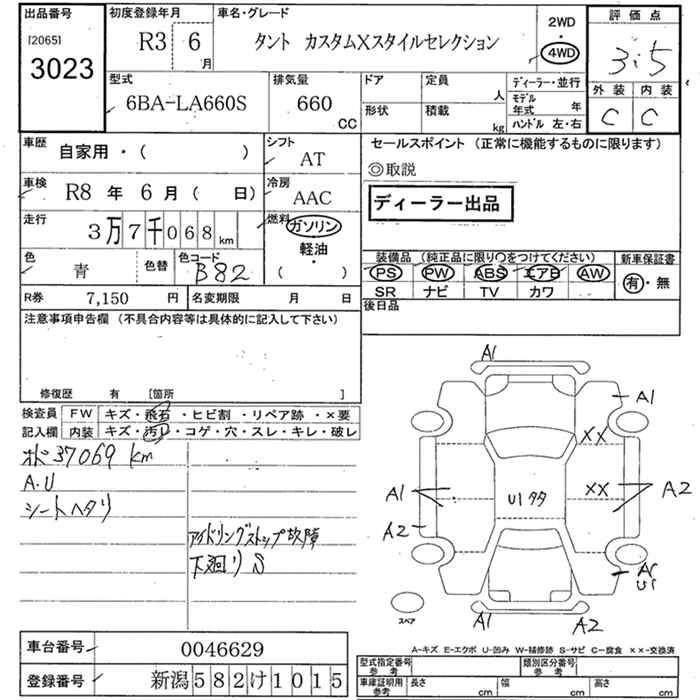 出品番号 初度登録年月 車名・グレード 評価点
[2065] 3023
R3 6月 タント カスタムXスタイルセレクション 2WD 4WD 3.5
外装 内装
C C
型式 排気量 ドア 定員 人 ディーラー・並行
6BA-LA660S 660 CC 形状 積載 kg モデル年式 年 ハンドル 左・右
車歴 自家用・( ) シフト AT
車検 R8年 6月 ( 日) 冷房 AAC
走行 3万7千068km 燃料 ガソリン 軽油・( )
色 青 色替 色コード B82
R券 7,150円 名変期限 月 日
セールスポイント (正常に機能するものに限ります)
◎取説
ディーラー出品
装備品 (純正品に限り○をつけてください) 新車保証書
PS PW ABS エアB AW 有・無
SR ナビ TV カワ
後日品
注意事項申告欄 (不具合内容等は具体的に記入して下さい)
修復歴 有 [箇所 ]
検査員記入欄 FW キズ・飛石・ヒビ割・リペア跡・×要
内装 キズ・汚レ・コゲ・穴・スレ・キレ・破レ
オド37069km
A.U
シートヘタリ
アイドリングストップ故障
下廻りS
A1
A1
XX
XX
A1 U1タタ A2
A2
A1
U1
スペア A1 A2
A-キズ E-エクボ U-凹み W-補修跡 S-サビ C-腐食 ××-交換済
車台番号 0046629
登録番号 新潟582け1015
型式指定番号 参考 類別区分番号 参考
車庫証明用 参考 長さ cm 幅 cm 高さ cm